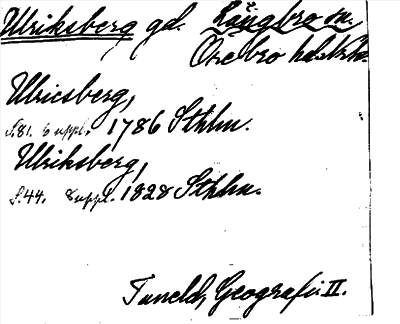 Ulriksberg gd. Längbro sn,
Örebro hd. Nrk.
Ulricsberg,
s. 81. 6 uppl. 1786 Sthlm.
Ulriksberg,
s. 44. 8 uppl. 1828 Sthlm.
Tuneld, Geografi II.